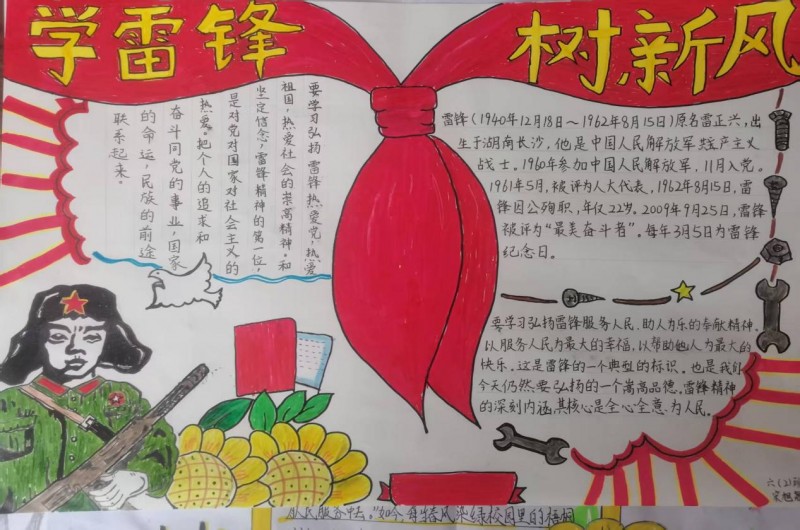 学雷锋
树新风
要学习弘扬雷锋热爱党，热爱
祖国，热爱社会的崇高精神。和
坚定信念，雷锋精神的第一位，
是对党对国家对社会主义的
热爱。把个人的追求和
奋斗同党的事业，国家
的命运，民族的前途
联系起来。
雷锋（1940年12月18日～1962年8月15日）原名雷正兴，出
生于湖南长沙，他是中国人民解放军共产主义
战士。1960年参加中国人民解放军，11月入党。
1961年5月，被评为人大代表，1962年8月15日，雷
锋因公殉职，年仅22岁。2009年9月25日，雷锋
被评为“最美奋斗者”。每年3月5日为雷锋
纪念日。
要学习弘扬雷锋服务人民、助人为乐的奉献精神。
以服务人民为最大的幸福，以帮助他人为最大的
快乐。这是雷锋的一个典型的标识。也是我们
今天仍然要弘扬的一个高尚品德。雷锋精神
的深刻内涵其核心是全心全意为人民。
六（2）班